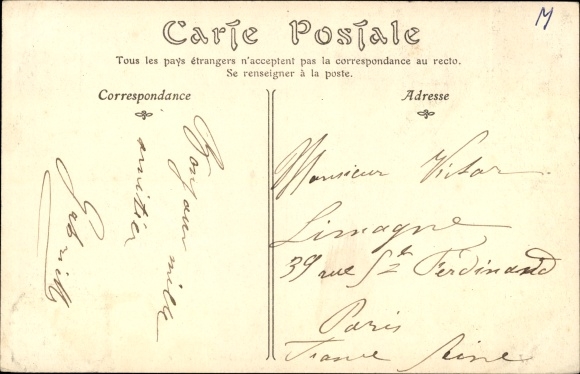 M
Carte Postale
Tous les pays étrangers n'acceptent pas la correspondance au recto.
Se renseigner à la poste.
Correspondance
Adresse
Bonjour mille
amitiés
Monsieur Victor
Limagne
39 rue St Ferdinand
Paris
France Seine